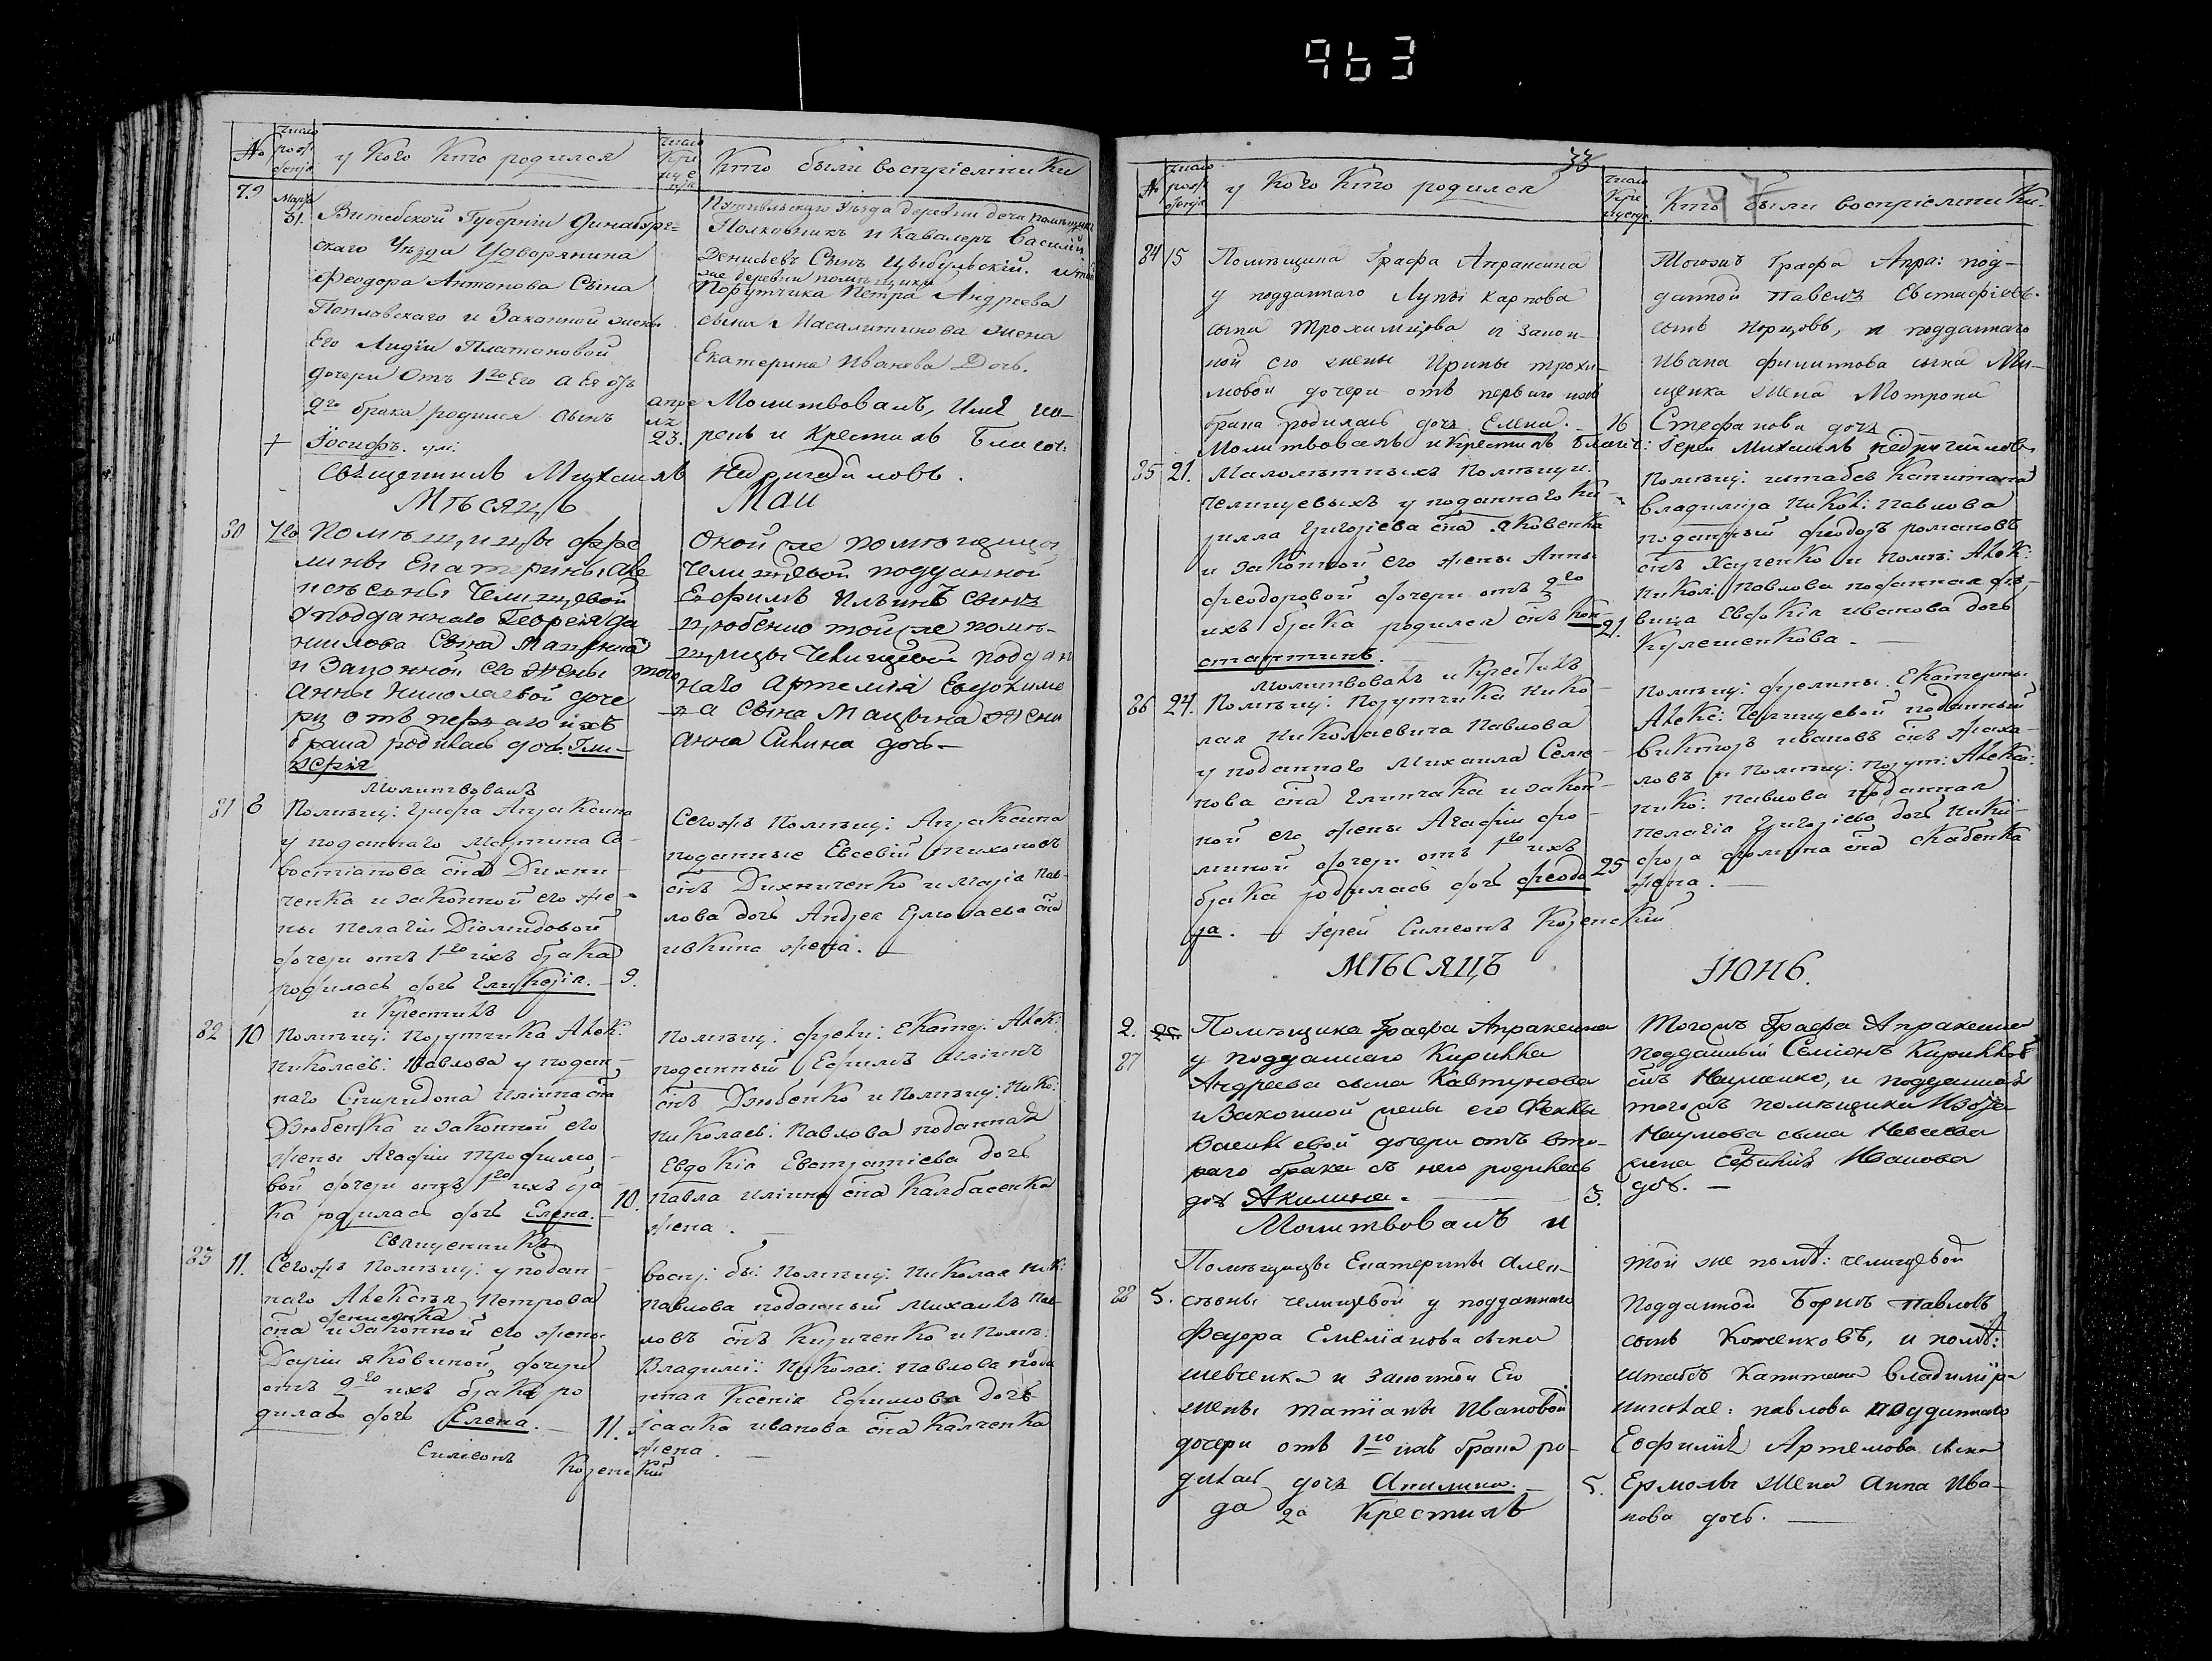 963
№
число рожденія
у Кого Кто родился
число Крещенія
Кто были воспріемники
79
Марта 31.
Витебской Губерніи Динабург=
скаго Уѣзда У дворянина
Феодора Антонова Сына
Поплавскаго и Законной жены
Его Лидіи Платоновой
дочери Отъ 1го Его а Ея отъ
2го брака родился сынъ
Іосифъ.
апре
ля
23.
Путивльскаго Уѣзда деревни помѣщикъ
Полковникъ и Кавалеръ Василій
Денисьевъ Сынъ Цыбульскій. и той
же деревни помѣщика
Порутчика Петра Андреева
сына Масалитинова жена
Екатерина Иванова Дочь.
Молитвовалъ, Имя на-
рекъ и Крестилъ Благоч:
Священникъ Михаилъ Недригайловъ.
Мѣсяцъ Маи
80
7го
Помѣщицы Фре
лины Екатерины Але
ксѣевны Челищевой
у подданнаго Георгія Да
нилова Сына
и Законной его жены
Анны Николаевой доче
ри отъ перваго ихъ
брака родилась дочь Гли-
керія
того
Окой же помѣщицы
Челищевой подданной
Ефимъ Ильинъ сынъ
Дзюбенко той же помѣ-
щицы Челищевой поддан
наго Артемія Евдокимо
ва Сына Мацвина жена
Анна Савина дочь-
Молитвовалъ
81
8
Помѣщ: Графа Апраксина
у поданнаго Мартина Се-
востіанова сна Дихни-
ченка и законной его же-
ны Пелагіи Діомидовой
дочери отъ 1го ихъ брака
родилась дочь Гликерія. -
9.
Сегожъ Помѣщ: Апраксина
поданные Евсевій Тихоновъ
снъ Дихниченко и Марія Пав-
лова дочь Андрея Ермолаева сна
ивкина жена. -
и Крестилъ
82
10
Помѣщ: Порутчика Алек:
Николаев: Павлова у подан-
наго Спиридона Иліина сна
Дзюбенка и законной его
жены Агафіи Трофимо-
вой дочери отъ 1го ихъ бра-
ка родилась дочь Елена. -
10.
Помѣщ: фрели: Екатер: Алек:
поданный Ефимъ Иліинъ
снъ Дзюбенко и Помѣщ: Нико:
Николаев: Павлова поданная
Евдокія Евстратіева дочь
Павла Иліина сна Калбасенка
жена. -
Священникъ
83
11.
Сегожъ Помѣщ: у подан-
наго Алексѣя Петрова
сна Денисенка и законной его жены
Даріи Яковиной дочери
отъ 2го ихъ брака ро
дилась дочь Елена. -
11.
Воспр: бы: Помѣщ: Николая Ник:
Павлова поданный Михаилъ Пав-
ловъ снъ Кириченко и Помѣ:
Владимі: Николае: Павлова пода
нная Ксенія Ефимова дочь
Ісаака Иванова сна Калченка
жена. -
Симеонъ Козенскій
33
№
число рожденія
у Кого Кто родился
число Крещенія.
Кто были воспріемники.
84
15
Помѣщика Графа Апраксина
у подданнаго Лупы Карпова
сына Трохимцова и закон-
ной его жены Ирины Трохи-
мовой дочери отъ перваго ихъ
брака родилась дочь Елена. -
16
Тогожъ Графа Апра: под-
данной Павелъ Евстафіевъ
сынъ Норцовъ, и подданнаго
Ивана Филиппова сына Ми-
щенка жена Мотрона
Стефанова дочь
Молитвовалъ и Крестилъ Благоч: Іерей Михаилъ Недригайловъ
85
21.
Малолѣтныхъ Помѣщи:
Челищевыхъ у поданнаго Ки-
рилла Григоріева сна Яковенка
и законной его жены Анны
Феодоровой дочери отъ 2го
ихъ брака родился снъ Кон-
стантинъ. -
21.
Помѣщ: штабсъ Капитана
Владиміра Никол: Павлова
поданный Феодоръ Романовъ
снъ Харченко и Помѣ: Алек:
Никол: Павлова поданная дѣ-
вица Евдокія Иванова дочь
Кулешенкова. -
Молитвовалъ и Крестилъ
86
24.
Помѣщ: Порутчика Нико-
лая Николаевича Павлова
у поданнаго Михаила Семе-
нова сна Глинчака и закон-
ной его жены Агафіи Фо-
миной дочери отъ 1го ихъ
брака родилась дочь Феодо
ра. -
25
Помѣщ: фрелины Екатерины
Алекс: Челищевой поданный
Викторъ Ивановъ снъ Жаха-
ловъ и Помѣщ: Порут: Алекс:
Нико: Павлова поданная
Пелагія Григоріева дочь Ники-
фора Фомина сна Скабенка
жена. -
Іерей Симеонъ Козенскій
Мѣсяцъ Іюнь.
87
2.
Помѣщика Графа Апраксина
у подданнаго Кирилла
Андреева сына Кавтунова
и Законной жены его Феклы
Василіевой дочери отъ вто-
раго брака съ нею родилась
дочь Акилина. -
3.
Тогожъ Графа Апраксина
подданный Семіонъ Кирилловъ
снъ Науменко, и подданнаго
тогожъ помѣщика Изота
Наумова сына
жена Евфимія Иванова
дочь. -
Молитвовалъ и
88
5.
Помѣщицы Екатерины Алек-
сѣвны Челищевой у подданнаго
Федора Емеліанова сына
Шевченка и законной Его
жены Татіаны Ивановой
дочери отъ 1го ихъ брака ро-
дилась дочь Акилина. -
5.
той же помѣ: Челищевой
подданной Борисъ Павловъ
сынъ Коженковъ, и помѣ:
штабсъ Капитана Владиміра
Николае: Павлова подданнаго
Евфимія Артемова сына
Ермолы жена Анна Ива-
нова дочь. -
Крестилъ